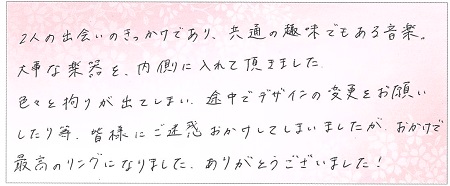 2人の出会いのきっかけであり、共通の趣味でもある音楽。
大事な楽器を、内側に入れて頂きました。
色々と拘りが出てしまい、途中でデザインの変更をお願い
したり等、皆様にご迷惑おかけしてしまいましたが、おかげで
最高のリングになりました。ありがとうございました!